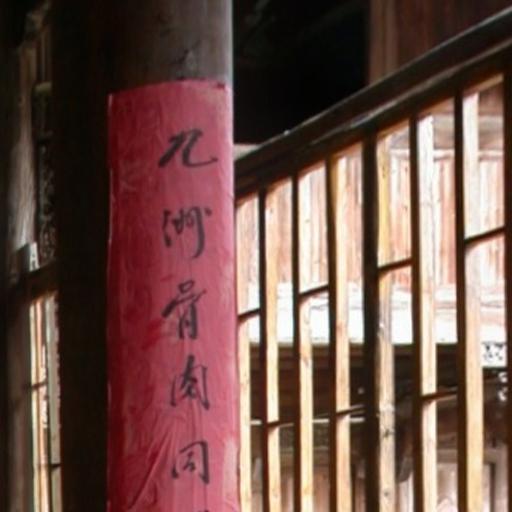 九洲骨肉同